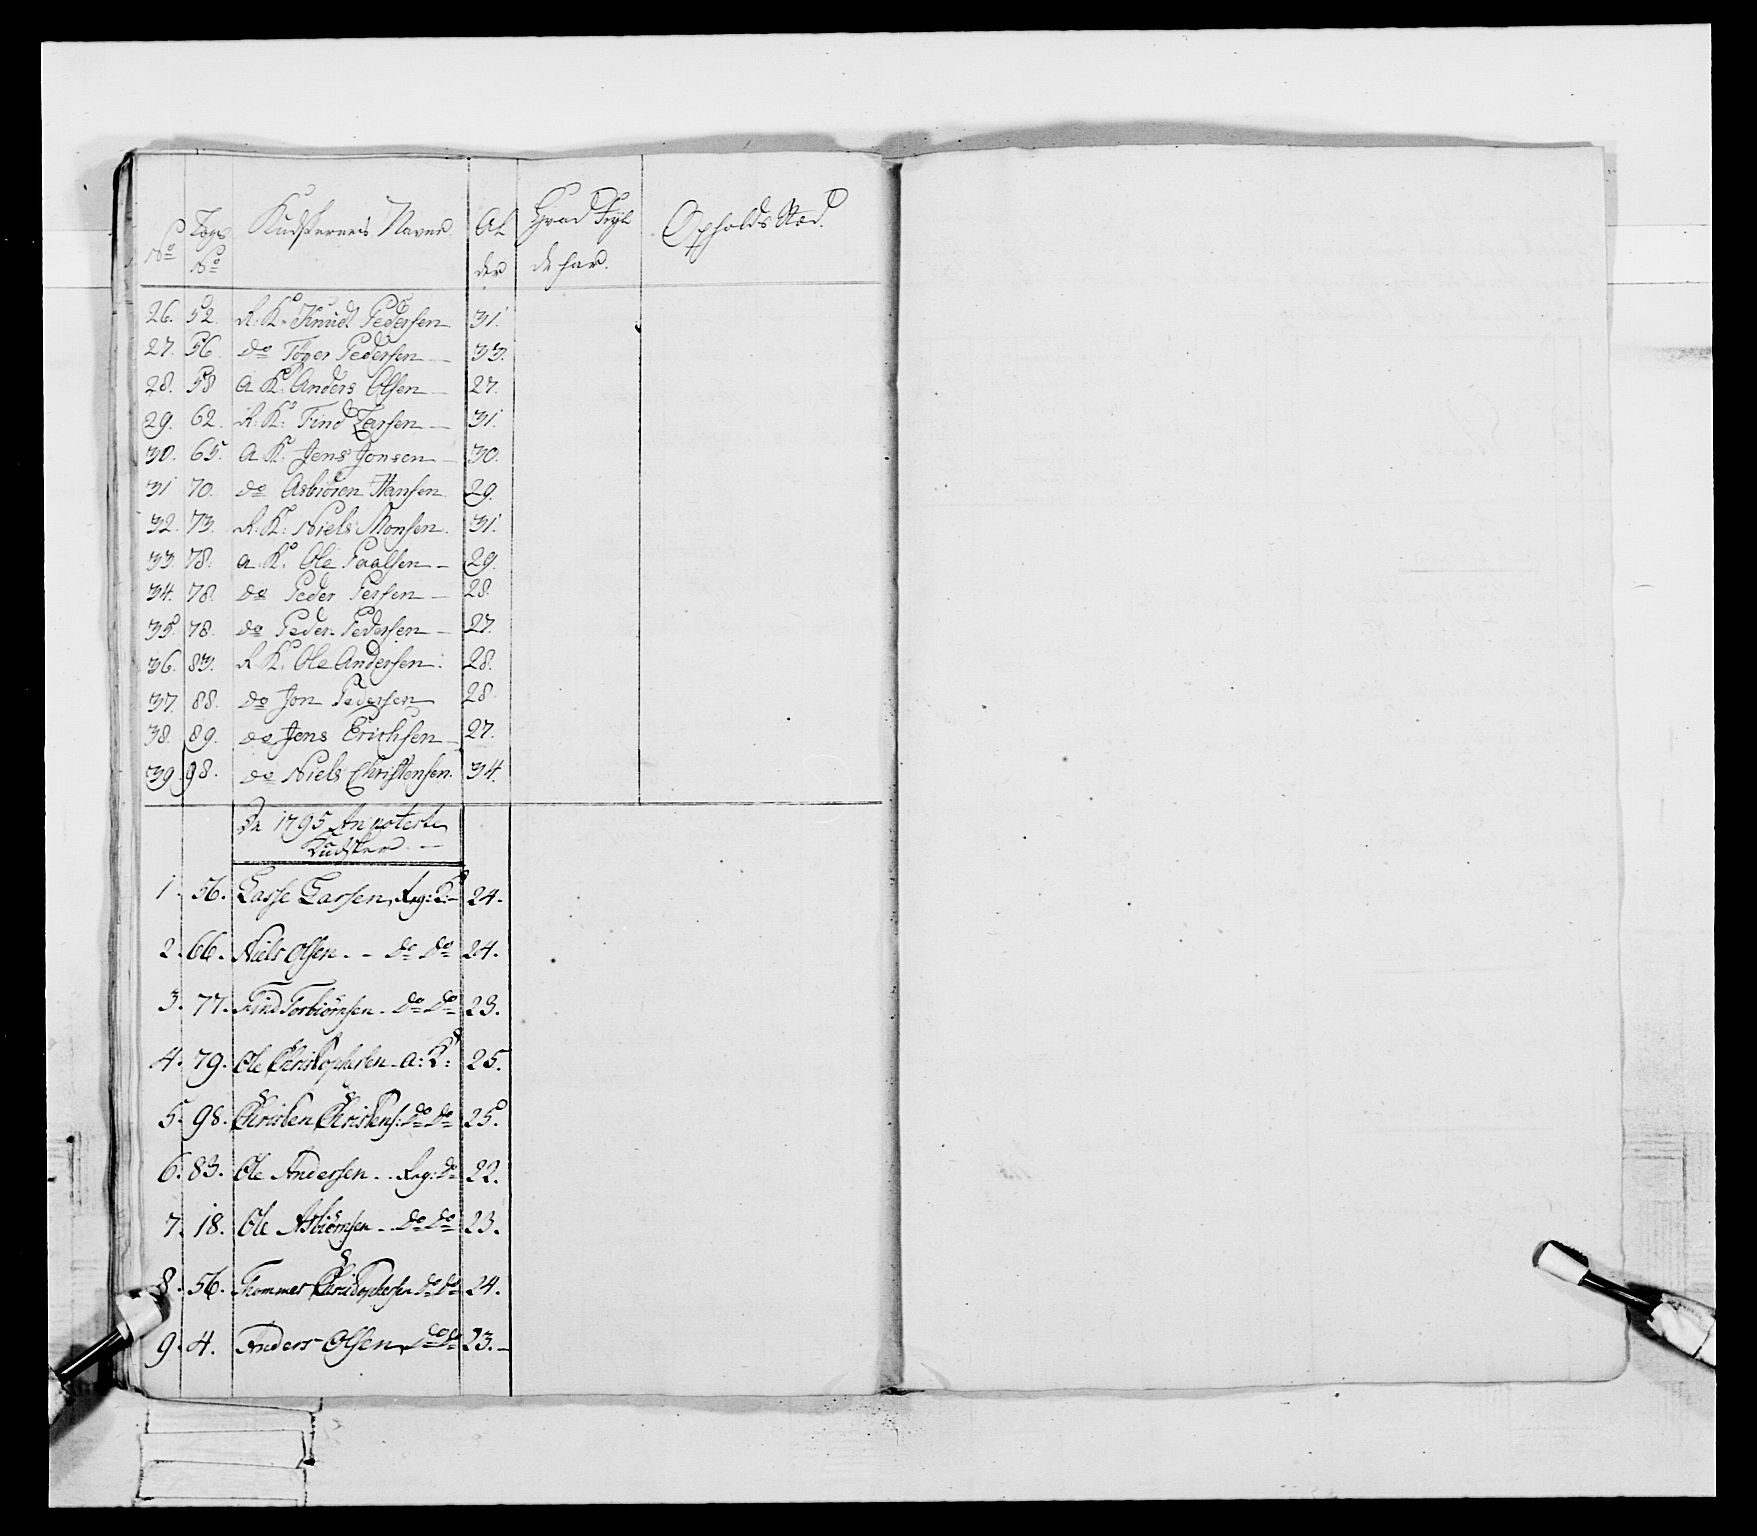 No Lægs No Kudskernes Navne Al der Hvad Feyl de har. Opholds Stæd.
26. 52. R: K: Knud Pedersen 31.
27. 56. do Tøger Pedersen 33.
28. 58 a K: Anders Olsen 27.
29. 62. R: K: Find Larsen 31.
30. 65. a K: Jens Jonsen 30.
31 70. do Asbiören Hansen 29.
32. 73. R: K: Niels Monsen 31.
33. 78. a K: Ole Paalsen 29.
34. 78. do Peder Persen 28.
35. 78. do Peder Pedersen 27.
36. 83. R: K: Ole Andersen 28.
37. 88. do Jon Pedersen 28.
38. 89. do Jens Erichsen 27.
39. 98. do Niels Christensen 34.
De 1795 Anpoterte
Kudsker
1. 56. Lasse Larsen, Reg: K: 24.
2. 66. Niels Olsen do do 24.
3. 77. Find Torbiörnsen do do 23.
4. 79. Ole Christophersen a: K: 25.
5. 98. Christen Christens: do do 25.
6. 83. Ole Andersen Reg: do 22.
7. 18. Ole Asbiörnsen do do 23.
8. 56. Thommes Christophersen do do 24.
9. 4. Anders Olsen do do 23.